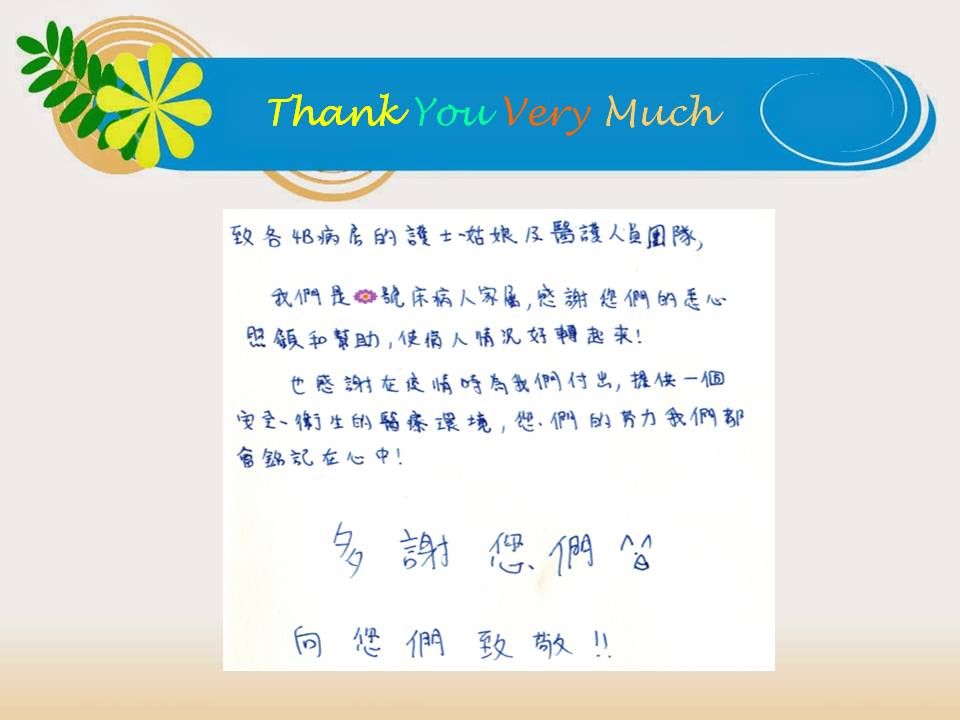 Thank You Very Much
致各4B病房的護士姑娘及醫護人員團隊,
我們是號床病人家屬,感謝您們的悉心
照顧和幫助,使病人情況好轉起來!
也感謝在疫情時為我們付出,提供一個
安全、衛生的醫療環境,您們的努力我們都
會銘記在心中!
多謝您們 ^^
向您們致敬!!